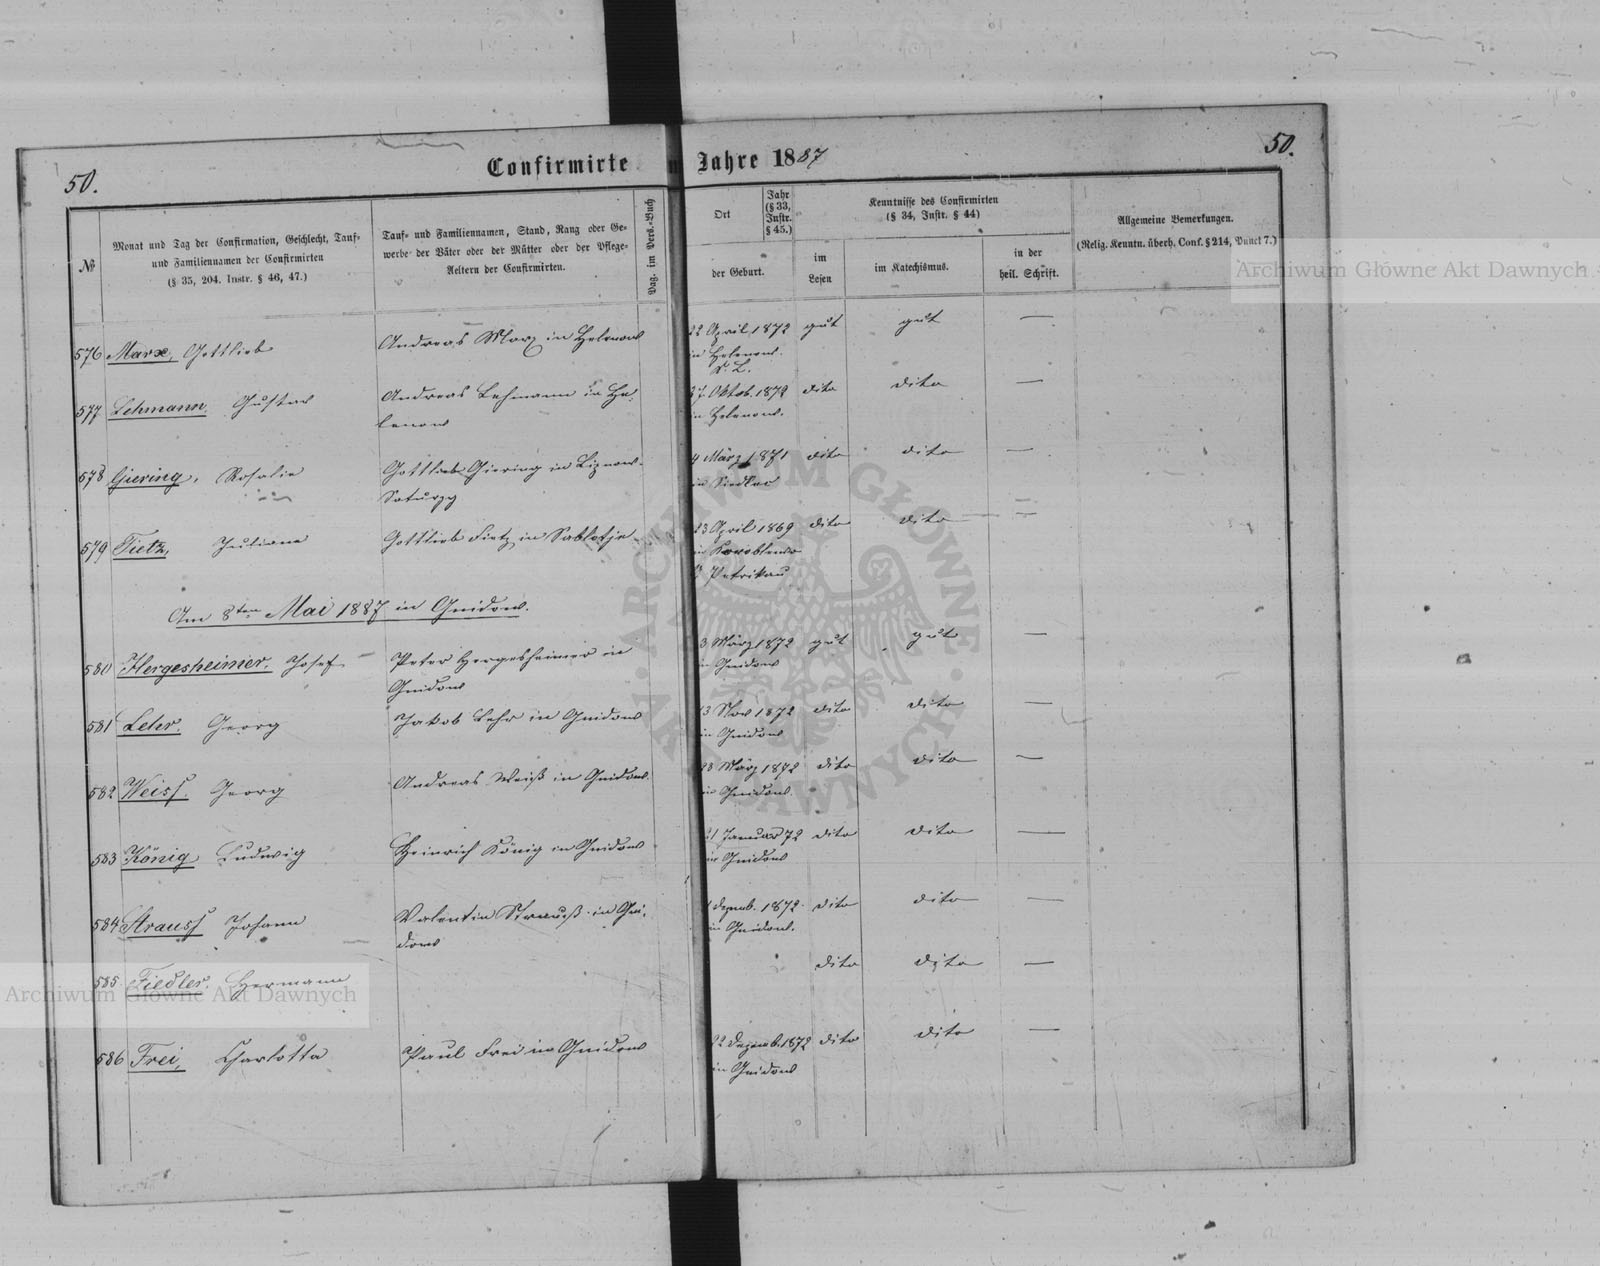 50.
Confirmirte
Jahre 1887
50.
№
Monat und Tag der Confirmation, Geschlecht, Tauf-
und Familiennamen der Confirmirten
(§ 35, 204. Instr. § 46, 47.)
Tauf- und Familiennamen, Stand, Rang oder Ge-
werbe der Väter oder der Mütter oder der Pflege-
Aeltern der Confirmirten.
Pag. im Pers.-Buch
Ort
Jahr
(§ 33,
Instr.
§ 45.)
der Geburt.
Kenntnisse des Confirmirten
(§ 34, Instr. § 44)
im
Lesen
im Katechismus.
in der
heil. Schrift.
Allgemeine Bemerkungen.
(Relig. Kenntn. überh. Conf. § 214, Punct 7.)
576 Marx, Gottlieb
Andreas Marx in Helenow
22 April 1872 gut gut —
in Helenow.
577 Lehmann. Gustav
Andreas Lehmann in He-
lenow
Oktob. 1872 dito dito —
in Helenow.
578 Giering, Rosalie
Gottlieb Giering in
4 März 1871 dito dito —
in
579 Tietz, Juliane
Gottlieb Tietz in
23 April 1869 dito dito —
in
Petrikau
Am 8ten Mai 1887 in Gnidow.
580 Hergesheimer. Josef
Peter Hergesheimer in
Gnidow
3 März 1872 gut gut —
in Gnidow
581 Lehr. Georg
Jakob Lehr in Gnidow
13 Nov 1872 dito dito —
in Gnidow
582 Weiss. Georg
Andreas Weiß in Gnidow.
28 März 1872 dito dito —
in Gnidow.
583 König Ludwig
Heinrich König in Gnidow
21 Januar 72 dito dito —
in Gnidow
584 Strauss Johann
Valentin Strauß in Gni-
dow
Dezemb. 1872. dito dito —
in Gnidow.
585 Fiedler. Hermann
dito dito —
586 Frei, Charlotta
Paul Frei in Gnidow
22 Dezemb. 1872 dito dito —
in Gnidow
ARCHIWUM GŁÓWNE AKT DAWNYCH
Archiwum Główne Akt Dawnych
Archiwum Główne Akt Dawnych